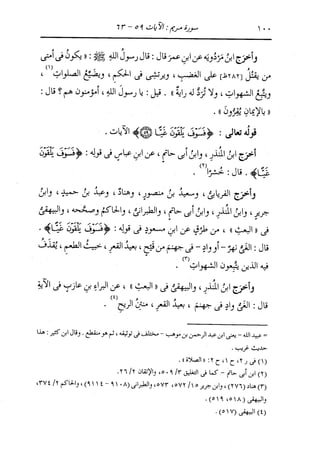 ١٠٠
سورة مريم : الآيات ٥٩ - ٦٣
وأخرَج ابنُ مَرْدُويَه عن ابنِ عمرَ قال : قال رسولُ اللهِ ﷺ : « يكونُ فى أمتى
من يُقتَلُ [٢٨٢ظ] على الغضبِ ، ويرتشى فى الحكمِ ، ويضيِّعُ الصلواتِ (١) ،
ويتَّبِعُ الشهواتِ ، ولا تُرَدُّ له رايةٌ » . قيل : يا رسولَ اللهِ ، أمؤمنون هم ؟ قال :
« بالإيمانِ يُقِرُّون » .
قولُه تعالى : ﴿ فَسَوْفَ يَلْقَوْنَ غَيًّا ﴾ الآيات .
أخرَج ابنُ المنذرِ ، وابنُ أبى حاتمٍ ، عن ابنِ عباسٍ فى قولِه : ﴿ فَسَوْفَ يَلْقَوْنَ
غَيًّا ﴾ . قال : خُسرًا (٢) .
وأخرَج الفريابىُّ ، وسعيدُ بنُ منصورٍ ، وهنادٌ ، وعبدُ بنُ حميدٍ ، وابنُ
جريرٍ ، وابنُ المنذرِ ، وابنُ أبى حاتمٍ ، والطبرانىُّ ، والحاكمُ وصحَّحه ، والبيهقىُّ
فى « البعثِ » ، من طرقٍ عن ابنِ مسعودٍ فى قولِه : ﴿ فَسَوْفَ يَلْقَوْنَ غَيًّا ﴾ .
قال : الغَىُّ نهرٌ - أو وادٍ - فى جهنمَ من قَيْحٍ ، بعيدُ القعرِ ، خبيثُ الطعمِ ، يُقذَفُ
فيه الذين يتَّبعون الشهواتِ (٣) .
وأخرَج ابنُ المنذرِ ، والبيهقىُّ فى « البعثِ » ، عن البراءِ بنِ عازبٍ فى الآيةِ
قال : الغَىُّ وادٍ فى جهنمَ ، بعيدُ القعرِ ، منتنُ الريحِ (٤) .
= عبيد الله - يعنى ابن عبد الرحمن بن موهب - مختلف فى توثيقه ، ثم هو منقطع . وقال ابن كثير : هذا
حديث غريب .
(١) فى ر ٢ ، ح ١ ، ح ٢ : « الصلاة » .
(٢) ابن أبى حاتم - كما فى التغليق ٣/ ٥٠٩ ، والإتقان ٢/ ٢٦ .
(٣) هناد (٢٧٦) ، وابن جرير ١٥/ ٥٧٢ ، ٥٧٣ ، والطبرانى (٩١٠٨ - ٩١١٤) ، والحاكم ٢/ ٣٧٤ ،
والبيهقى (٥١٨ ، ٥١٩) .
(٤) البيهقى (٥١٧) .